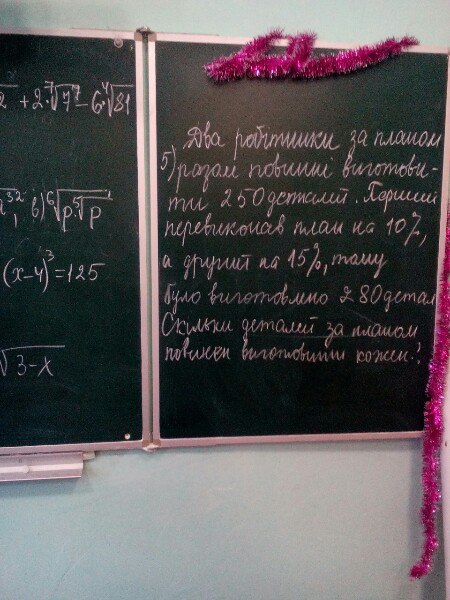 2 + 2·⁷√7⁷ - 6·⁴√81
32, в) ⁶√p ⁵√p
(x-4)³ = 125
√3-x
Два робітники за планом
5) разом повинні виготови-
ти 250 деталей. Перший
перевиконав план на 10%,
а другий на 15%, тому
було виготовлено 280 детал
Скільки деталей за планом
повинен виготовити кожен?